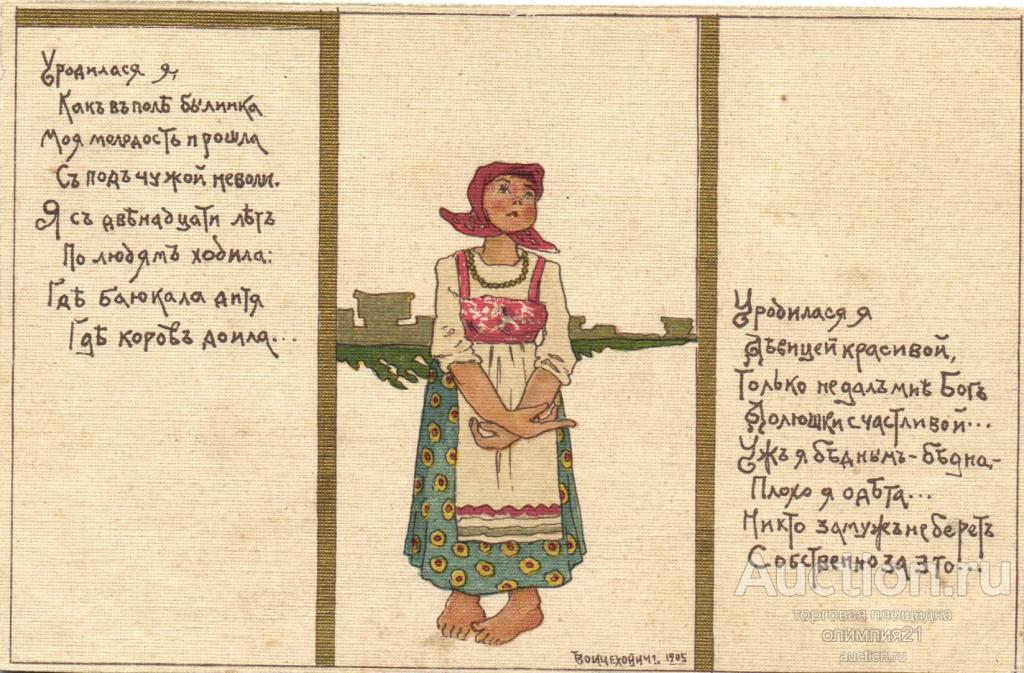 Уродилася я,
Какъ въ полѣ былинка
Моя молодость прошла
Съ подъ чужой неволи.
Я съ двѣнадцати лѣтъ
По людямъ ходила:
Гдѣ баюкала дитя
Гдѣ коровъ доила...
Уродилася я
Дѣвицей красивой,
Только не далъ мнѣ Богъ
Долюшки счастливой...
Ужъ я бѣднымъ-бѣдна,-
Плохо я одѣта...
Никто замужъ не беретъ
Собственно за это...
Войчеховичъ. 1905
Auction.ru
торговая площадка
олимпия21
auction.ru